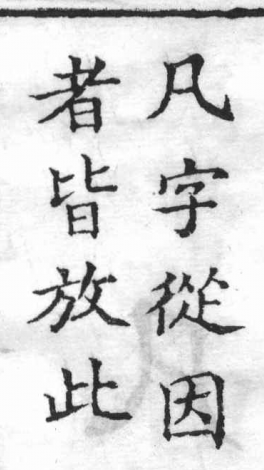 凡字從因
者皆放此